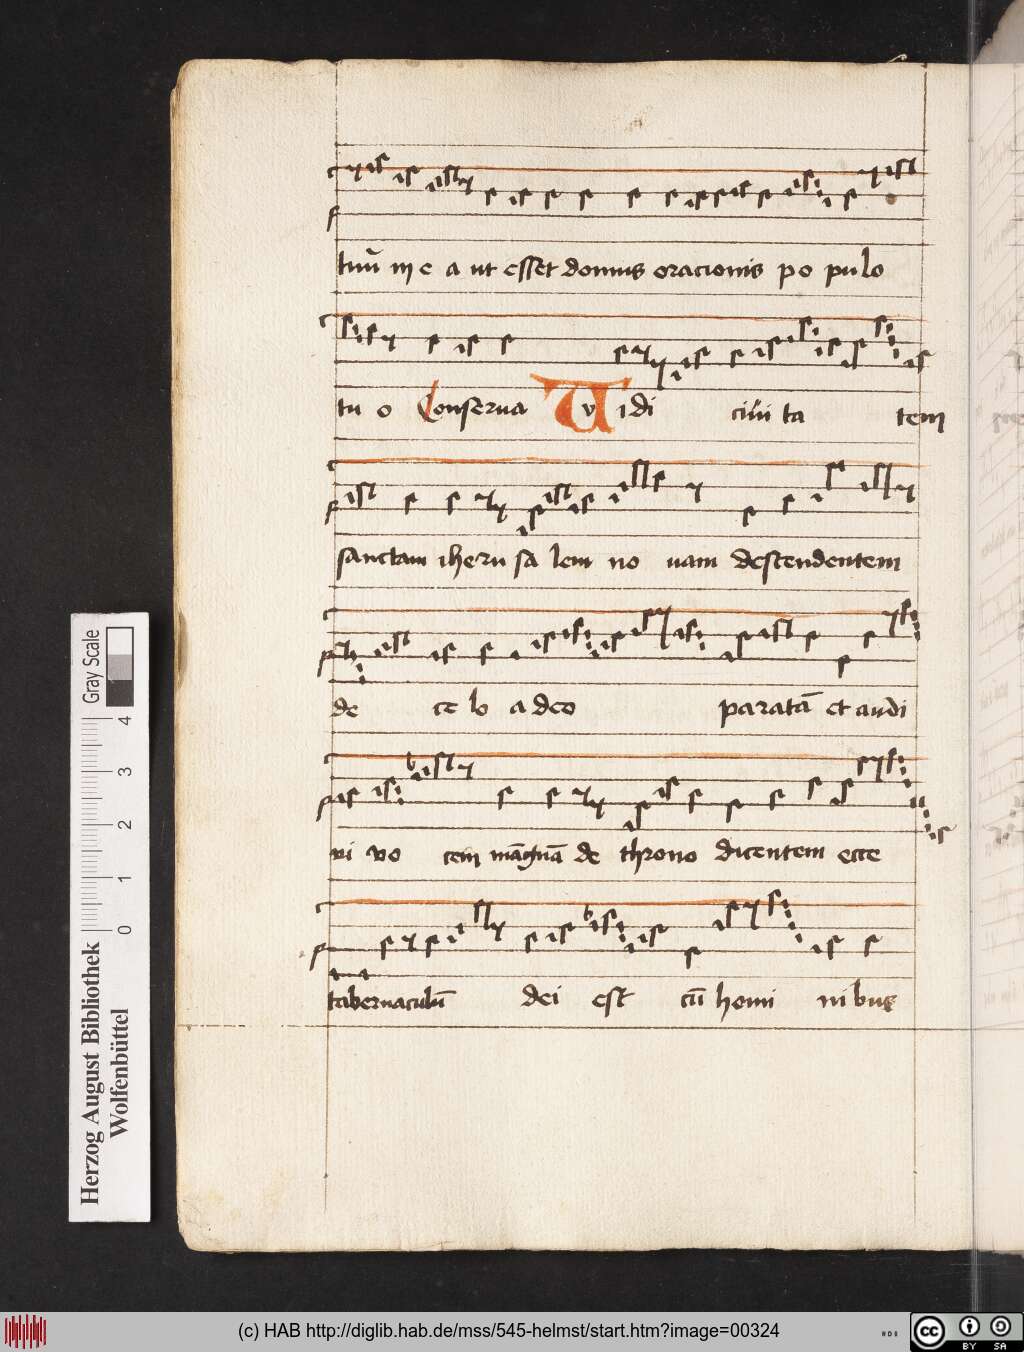 tuũ m e a ut esset domus oracionis po pulo
tu o Conserva Vidi civi ta tem
sanctam iheru sa lem no vam descendentem
de ce lo a deo paratã et audi
vi vo cem mãgnã de throno dicentem ecce
tabernaculũ dei est cũ homi nibus
Gray Scale
4
3
2
1
0
Herzog August Bibliothek
Wolfenbüttel
(c) HAB http://diglib.hab.de/mss/545-helmst/start.htm?image=00324
cc
BY SA